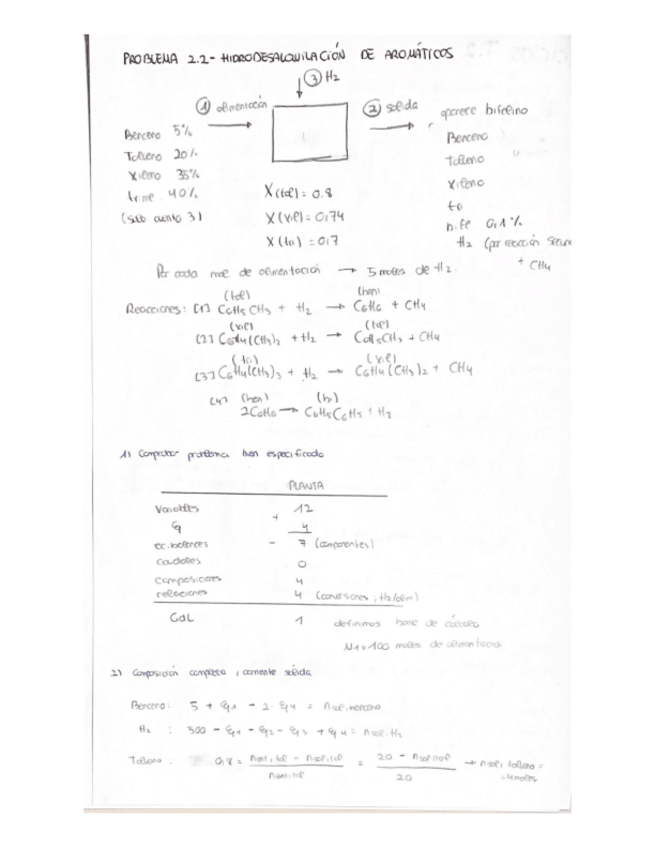 PROBLEMA 2.2- HIDRODESALQUILACIÓN DE AROMÁTICOS
③ H2
① alimentación
② salida
aparece bifelino
Benceno 5%
Tolueno 20%
Xileno 35%
trime 40%
(solo cuento 3)
X(tol) = 0.8
X(xil) = 0,74
X(tri) = 0,7
Benceno
tolueno
xileno
bife 0,1%
H2 (por reacción secun
+ CH4
Por cada mol de alimentación → 5 moles de H2.
(tol) (ben)
Reacciones: (1) C6H5CH3 + H2 → C6H6 + CH4
(xil) (tol)
(2) C6H4(CH3)2 + H2 → C6H5CH3 + CH4
(tri) (xil)
(3) C6H4(CH3)3 + H2 → C6H4(CH3)2 + CH4
(4) (ben) (bi)
2C6H6 → C6H5C6H5 + H2
1) Comprobar problema bien especificado
PLANTA
Variables + 12
ξ 4
ec. balances - 7 (componentes)
caudales 0
composiciones 4
relaciones 4 (conversiones, H2/alim)
GdL 1 definimos base de cálculo
N1=100 moles de alimentación
2) Composición completa, corriente salida
Benceno: 5 + ξ1 - 2·ξ4 = nsal,benceno
H2 : 500 - ξ1 - ξ2 - ξ3 + ξ4 = nsal,H2
Tolueno: 0,8 = nent,tol - nsal,tol / nent,tol = 20 - nsal,tol / 20 → nsal,tolueno = 4 moles